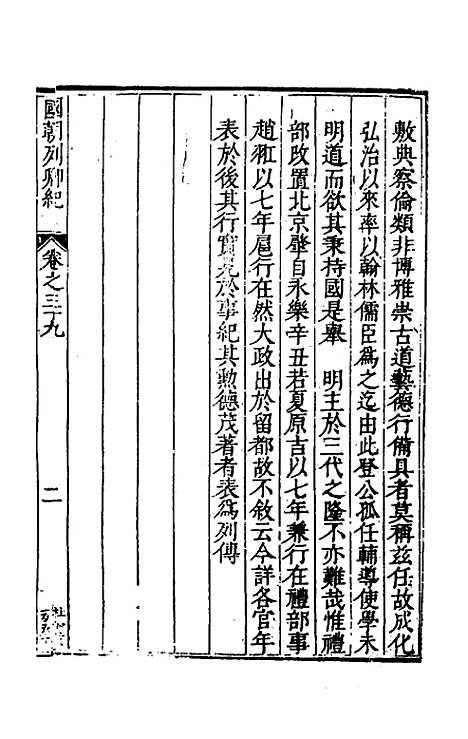 敷典察倫類非博雅崇古道藝德行備具者莫稱兹任故成化
弘治以來率以翰林儒臣爲之迄由此登公孤任輔導使學未
明道而欲其秉持國是舉　明主於三代之隆不亦難哉惟禮
部改置北京肇自永樂辛丑若夏原吉以七年兼行在禮部事
趙羾以七年扈行在然大政出於留都故不敘云今詳各官年
表於後其行實見於事紀其勲德茂著者表爲列傳
國朝列卿紀
卷之三十九
二